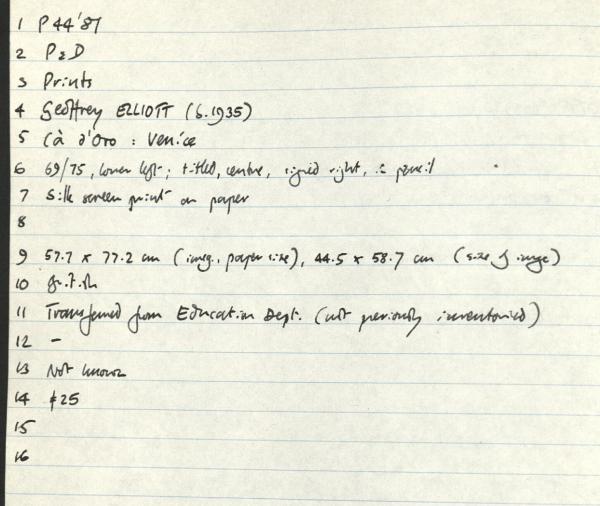 1 P 44'87
2 P & D
3 Prints
4 Geoffrey ELLIOTT (b. 1935)
5 Cà d'Oro : Venice
6 69/75, lower left; titled, centre, signed right, in pencil
7 Silk screen print on paper
8
9 57.7 x 77.2 cm (irreg., paper size), 44.5 x 58.7 cm (size of image)
10 British
11 Transferred from Education Dept. (not previously inventoried)
12 -
13 Not known
14 £25
15
16